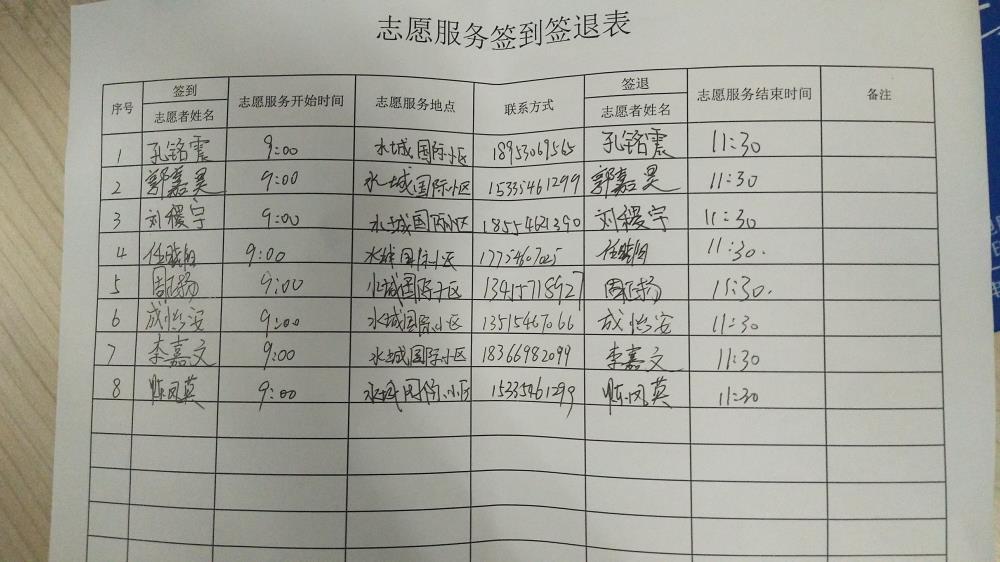 志愿服务签到签退表
序号 签到 志愿者姓名 志愿服务开始时间 志愿服务地点 联系方式 签退 志愿者姓名 志愿服务结束时间 备注
1 孔铭震 9:00 水城国际小区 18953069565 孔铭震 11:30
2 郭嘉昊 9:00 水城国际小区 15335461299 郭嘉昊 11:30
3 刘稷宇 9:00 水城国际小区 18554621390 刘稷宇 11:30
4 9:00 水城国际小区 11:30.
5 9:00 水城国际小区 13415718927 11:30.
6 成怡安 9:00 水城国际小区 13515467066 成怡安 11:30
7 李嘉文 9:00 水城国际小区 18366982099 李嘉文 11:30
8 陈凤英 9:00 水城国际小区 15335461299 陈凤英 11:30